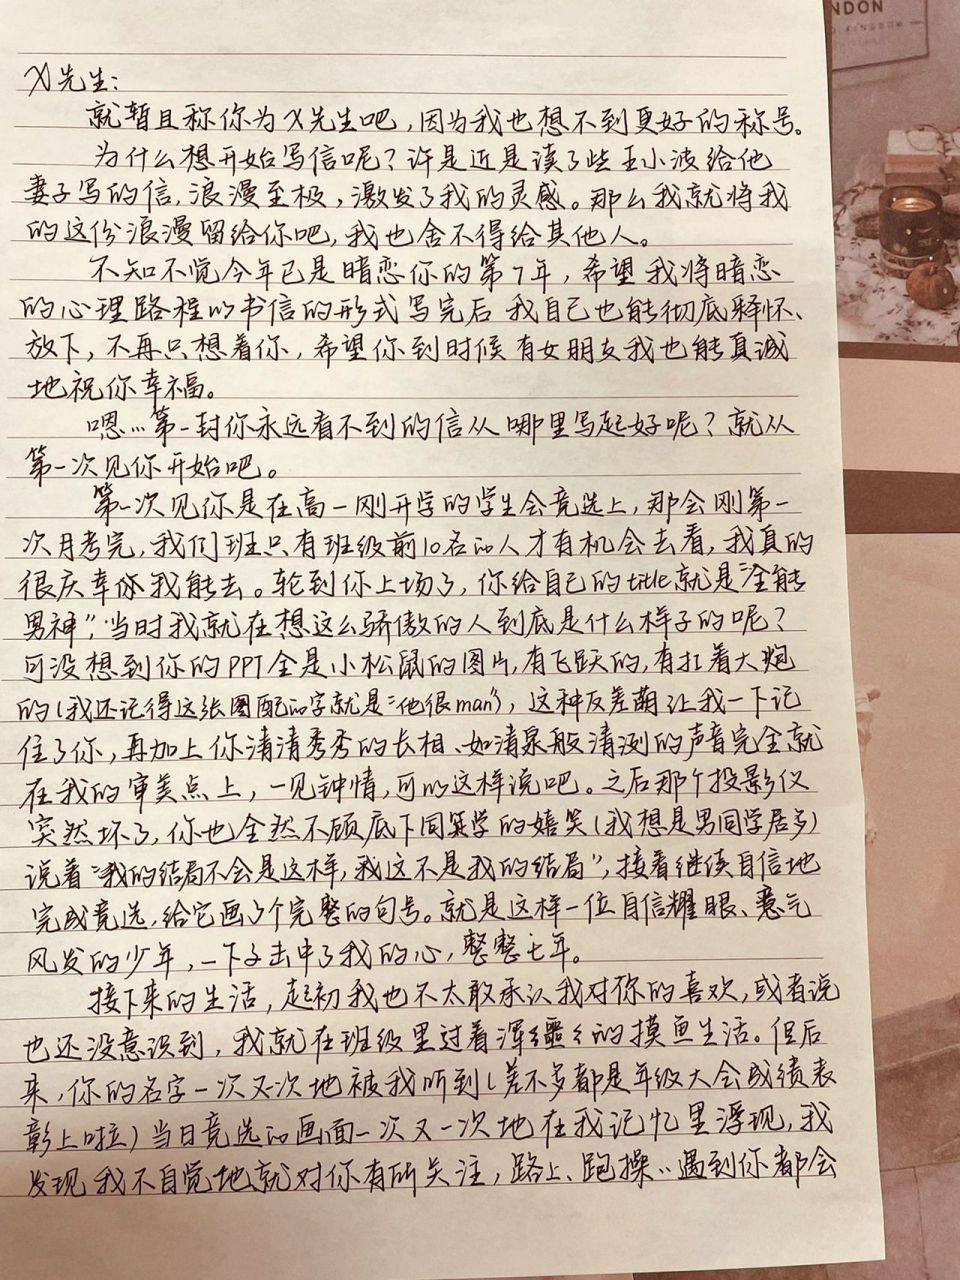 NDON
X先生：
就暂且称你为X先生吧，因为我也想不到更好的称号。
为什么想开始写信呢？许是近是读了些王小波给他
妻子写的信，浪漫至极，激发了我的灵感。那么我就将我
的这份浪漫留给你吧，我也舍不得给其他人。
不知不觉今年已是暗恋你的第7年，希望我将暗恋
的心理路程以书信的形式写完后我自己也能彻底释怀、
放下，不再只想着你，希望你到时候有女朋友我也能真诚
地祝你幸福。
嗯…第一封你永远看不到的信从哪里写起好呢？就从
第一次见你开始吧。
第一次见你是在高一刚开学的学生会竞选上，那会刚第一
次月考完，我们班只有班级前10名的人才有机会去看，我真的
很庆幸我能去。轮到你上场了，你给自己的title就是“全能
男神”，当时我就在想这么骄傲的人到底是什么样子的呢？
可没想到你的PPT全是小松鼠的图片，有飞跃的，有扛着大炮
的（我还记得这张图配的字就是“他很man”），这种反差萌让我一下记
住了你，再加上你清清秀秀的长相、如清泉般清冽的声音完全就
在我的审美点上，一见钟情，可以这样说吧。之后那个投影仪
突然坏了，你也全然不顾底下同学的嬉笑（我想是男同学居多）
说着“我的结局不会是这样，我这不是我的结局”，接着继续自信地
完成竞选，给它画了个完整的句号。就是这样一位自信耀眼、意气
风发的少年，一下子击中了我的心，整整七年。
接下来的生活，起初我也不太敢承认我对你的喜欢，或者说
也还没意识到，我就在班级里过着浑浑噩噩的摸鱼生活。但后
来，你的名字一次又次地被我听到（差不多都是年级大会成绩表
彰上啦）当日竞选的画面一次又一次地在我记忆里浮现，我
发现我不自觉地就对你有所关注，路上、跑操…遇到你都会